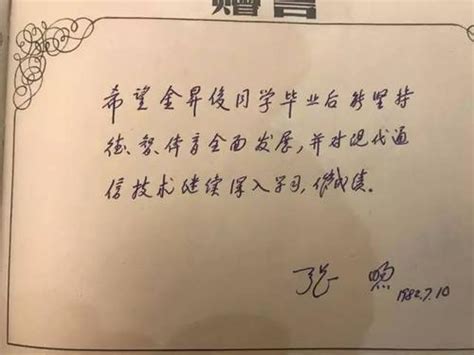 赠言
希望金昇俊同学毕业后能坚持
德、智、体育全面发展,并对现代通
信技术继续深入学习,作成绩。
张煦 1982.7.10